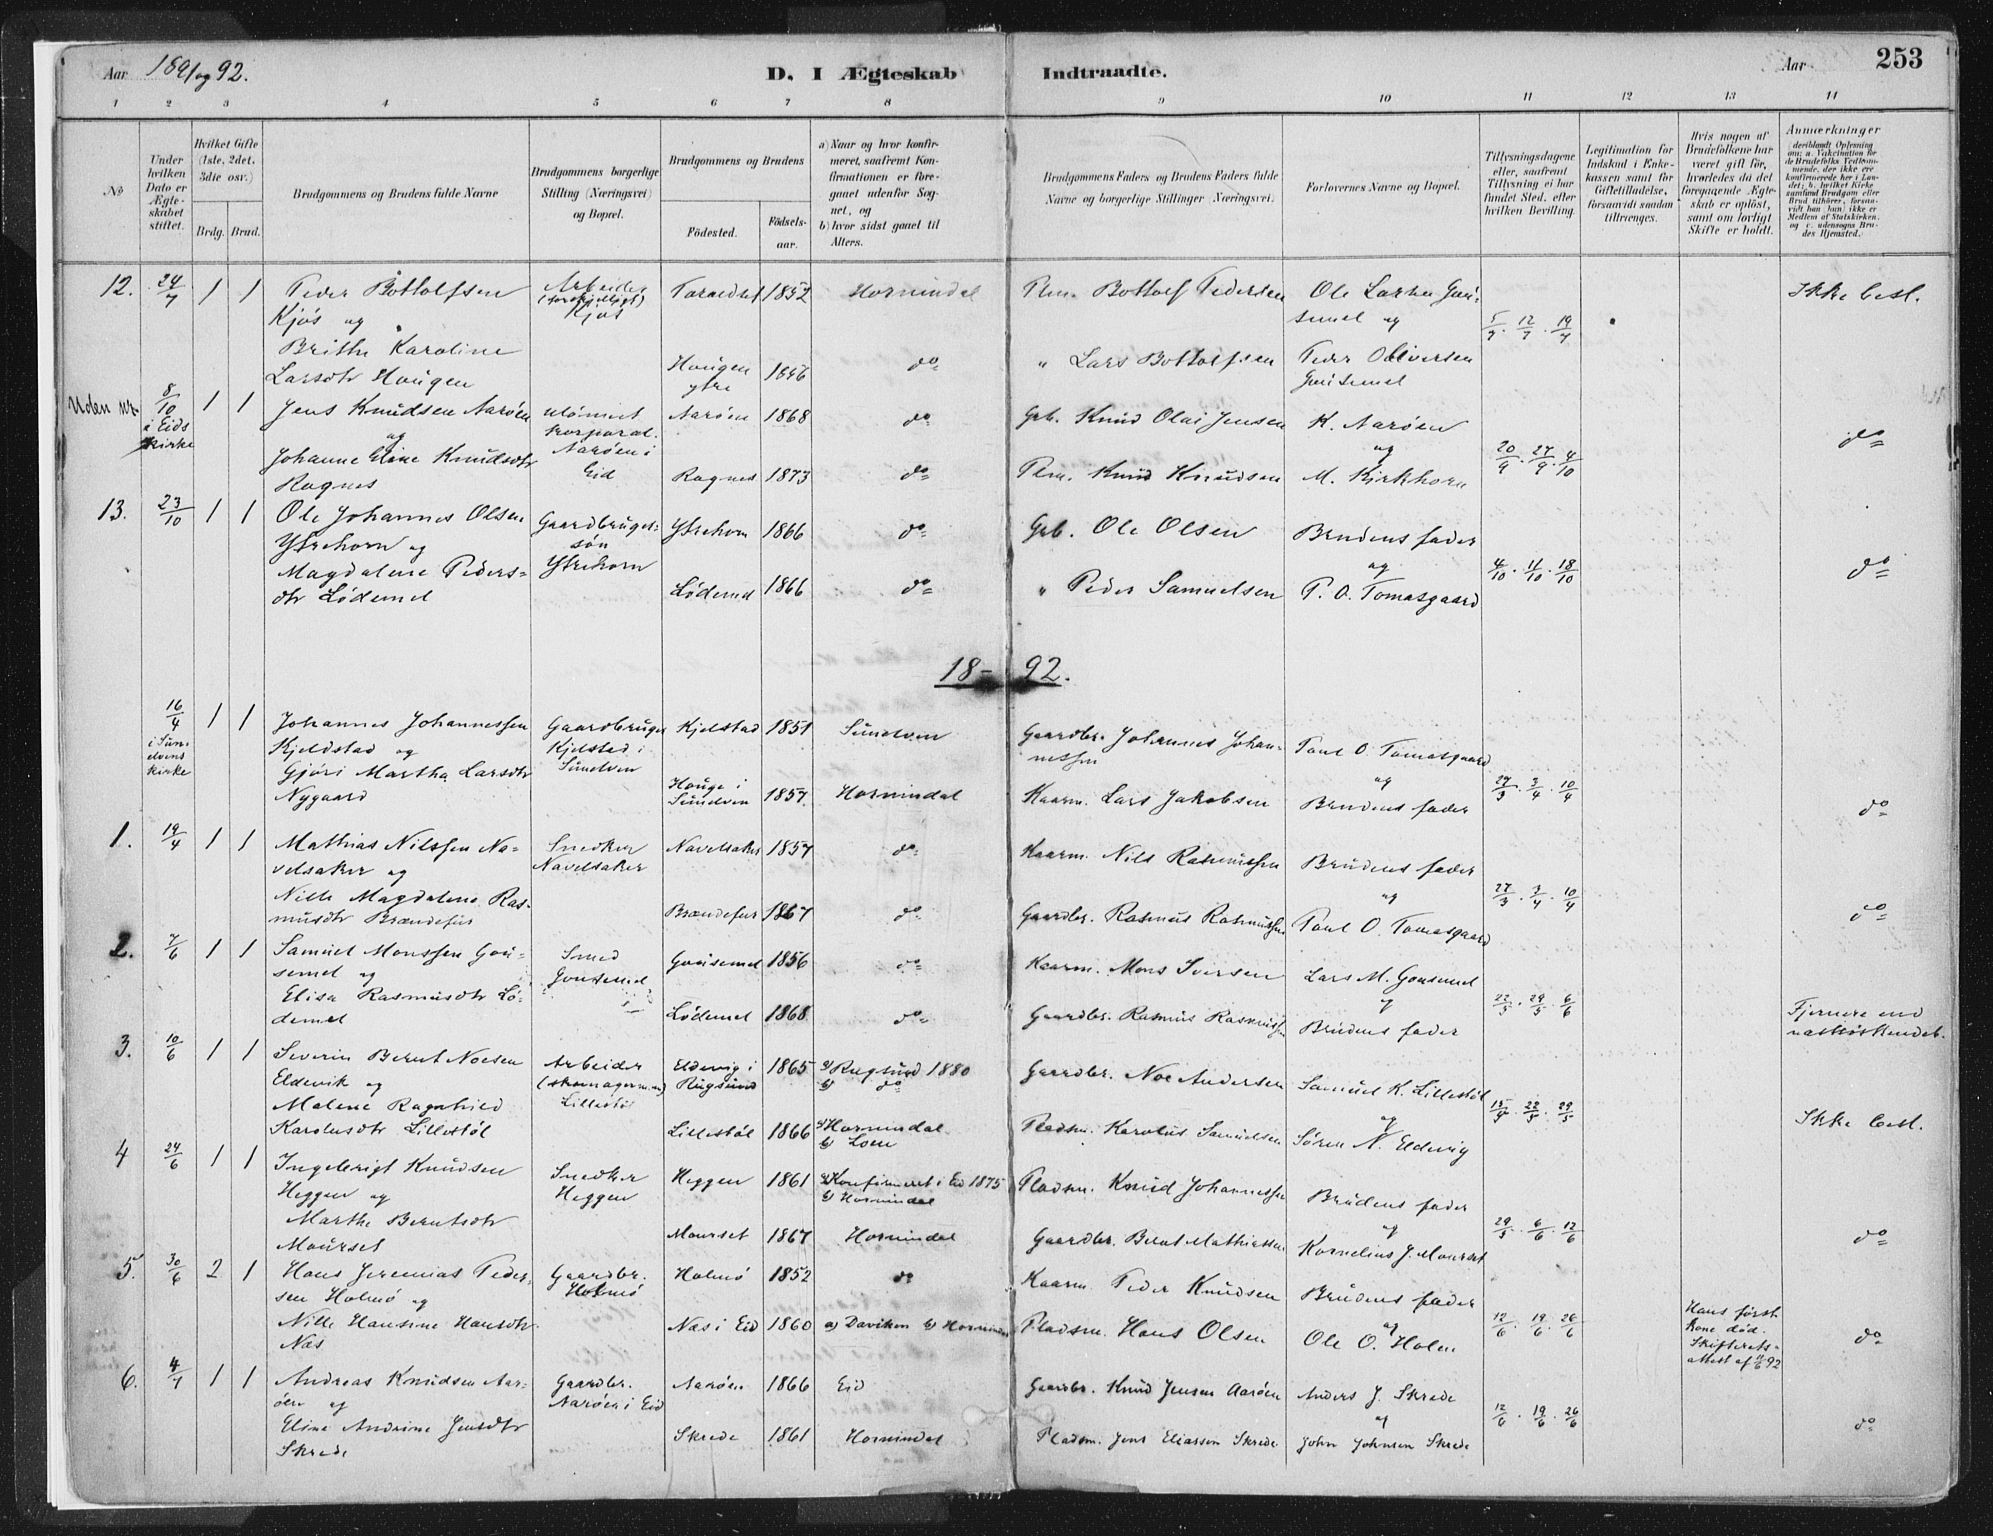 Aar 1891 og 92.
D. I Ægteskab Indtraadte.
Aar
253
1 2 3 4 5 6 7 8 9 10 11 12 13 14
No
Under hvilken Dato er Ægteskabet stiftet.
Hvilket Gifte (1ste, 2det, 3die osv.)
Brdg. Brud.
Brudgommens og Brudens fulde Navne
Brudgommens borgerlige Stilling (Næringsvei) og Bopæl.
Brudgommens og Brudens
Fødested.
Fødselsaar.
a) Naar og hvor konfirmeret, saafremt Konfirmationen er foregaaet udenfor Sognet, og
b) hvor sidst gaaet til Alters.
Brudgommens Faders og Brudens Faders fulde Navne og borgerlige Stillinger Næringsvei.
Forlovernes Navne og Bopæl.
Tillysningsdagene eller, saafremt Tillysning ei har fundet Sted, efter hvilken Bevilling.
Legitimation for Indskud i Enkekassen samt for Giftetilladelse, forsaavidt saadan tiltrænges.
Hvis nogen af Brudefolkene har været gift før, hvorledes da det foregaaende Ægteskab er opløst, samt om lovligt Skifte er holdt.
Anmærkninger
12. 24/7 1 1 Peder Bottolfsen Kjøs og
Arbeider Kjøs
1852 Hornindal
Plm. Bottolf Pedersen
5/7 . 12/7 . 19/7
Ikke besl.
Brithe Karoline Larsdtr Hougen
Hougen ytre 1846 do
" Lars Bottolfsen
Uden nr. 8/10 i Eids kirke 1 1 Jens Knudsen Aarøen og
Aarøen i Eid
Aarøen 1868 do
Grb. Knud Olai Jensen
K. Aarøen og
20/9 . 27/9 . 4/10
do
Johanne Eline Knudsdtr Ragnes
Ragnes 1873 do
Plm. Knud Knudsen
M. Kirkhorn
13. 23/10 1 1 Ole Johannes Olsen Ytrehorn og
Gaardbrugersøn Ytrehorn
Ytrehorn 1866 do
Grb. Ole Olsen
Brudens fader og
4/10 . 11/10 . 18/10
do
Magdalene Pedersdtr Lødemel
Lødemel 1866 do
" Peder Samuelsen
P. O. Tomasgaard
18-92.
16/4 i Sunelvens kirke 1 1 Johannes Johannessen Kjeldstad og
Gaardbruger Kjelstad i Sunelven
Kjelstad 1851 Sunelven
Gaardbr. Johannes Johannessen
Paul O. Tomasgaard og
27/3 . 3/4 . 10/4
do
Gjøri Martha Larsdtr Nygaard
Houge i Sunelven 1857 Hornindal
Kaarm. Lars Jakobsen
Brudens fader
1. 19/4 1 1 Mathias Nilssen Navelsaker og
Snedker Navelsaker
Navelsaker 1857 do
Kaarm. Nils Rasmussen
Brudens fader og
27/3 . 3/4 . 10/4
do
Nille Magdalene Rasmusdtr Brændefur
Brændefur 1867 do
Gaardbr. Rasmus Rasmussen
Paul O. Tomasgaard
2. 7/6 1 1 Samuel Monssen Gousemel og
Smed Gousemel
Gousemel 1856 do
Kaarm. Mons Iversen
Lars M. Gousemel og
22/5 . 29/5 . 6/6
Elisa Rasmusdtr Lødemel
Lødemel 1868 do
Gaardbr. Rasmus Rasmussen
Brudens fader
Fjernere end
3. 10/6 1 1 Severin Bernt Noesen Eldevik og
Arbeider Lillestøl
Eldevig i Rugsund 1865 a) Rugsund 1880 b) do
Gaardbr. Noe Andersen
Samuel K. Lillestøl og
15/5 . 22/5 . 29/5
Ikke besl.
Malene Ragnhild Karolusdtr Lillestøl
Lillestøl 1866 a) Hornindal b) Loen
Pladsm. Karolus Samuelsen
Søren N. Eldevig
4 24/6 1 1 Ingebrigt Knudsen Heggen og
Snedker Heggen
Heggen 1861 a) Konfirmeret i Eid 1875 b) Hornindal
Pladsm. Knud Johannessen
Brudens fader og
29/5 . 6/6 . 12/6
do
Marthe Berntsdtr Mourset
Mourset 1867 Hornindal
Gaardbr. Bernt Mathiassen
Kornelius J. Mourset
5. 30/6 2 1 Hans Jeremias Pedersen Holmø og
Gaardbr. Holmø
Holmø 1852 do
Kaarm Peder Knudsen
Brudens fader og
12/6 . 19/6 . 26/6
Hans første kone død. Skifterets-attest af 11/6 92
do
Nille Hansine Hansdtr Næs
Næs i Eid 1860 a) Daviken b) Hornindal
Pladsm. Hans Olsen
Ole O. Holm
6. 4/7 1 1 Andreas Knudsen Aarøen og
Gaardbr. Aarøen i Eid
Aarøen 1866 Eid
Gaardbr. Knud Jensen Aarøen
Anders J. Skrede og
12/6 . 19/6 . 26/6
do
Eline Andrine Jensdtr Skrede
Skrede 1861 Hornindal
Pladsm. Jens Eliassen Skrede
John Johnsen Skrede